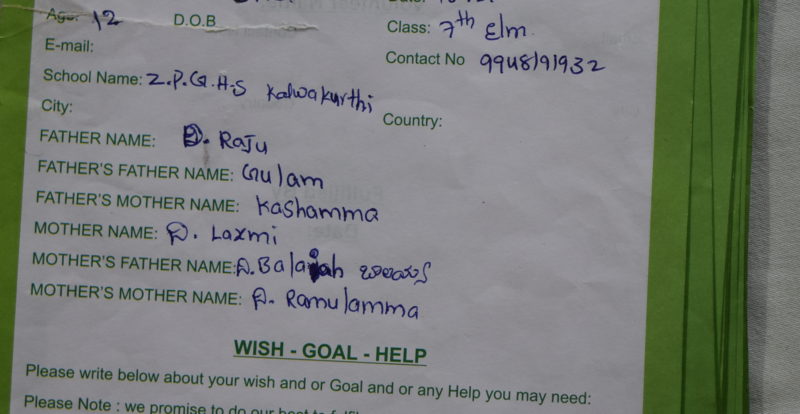 Age: 12 D.O.B
Class: 7th Elm
E-mail:
Contact No 9948191932
School Name: Z.P.G.H.S Kalwakurthi
City: Country:
FATHER NAME: D. Raju
FATHER'S FATHER NAME: Gulam
FATHER'S MOTHER NAME: Kashamma
MOTHER NAME: D. Laxmi
MOTHER'S FATHER NAME: D. Balaiah బాలయ్య
MOTHER'S MOTHER NAME: D. Ramulamma
WISH - GOAL - HELP
Please write below about your wish and or Goal and or any Help you may need:
Please Note : we promise to do our best to